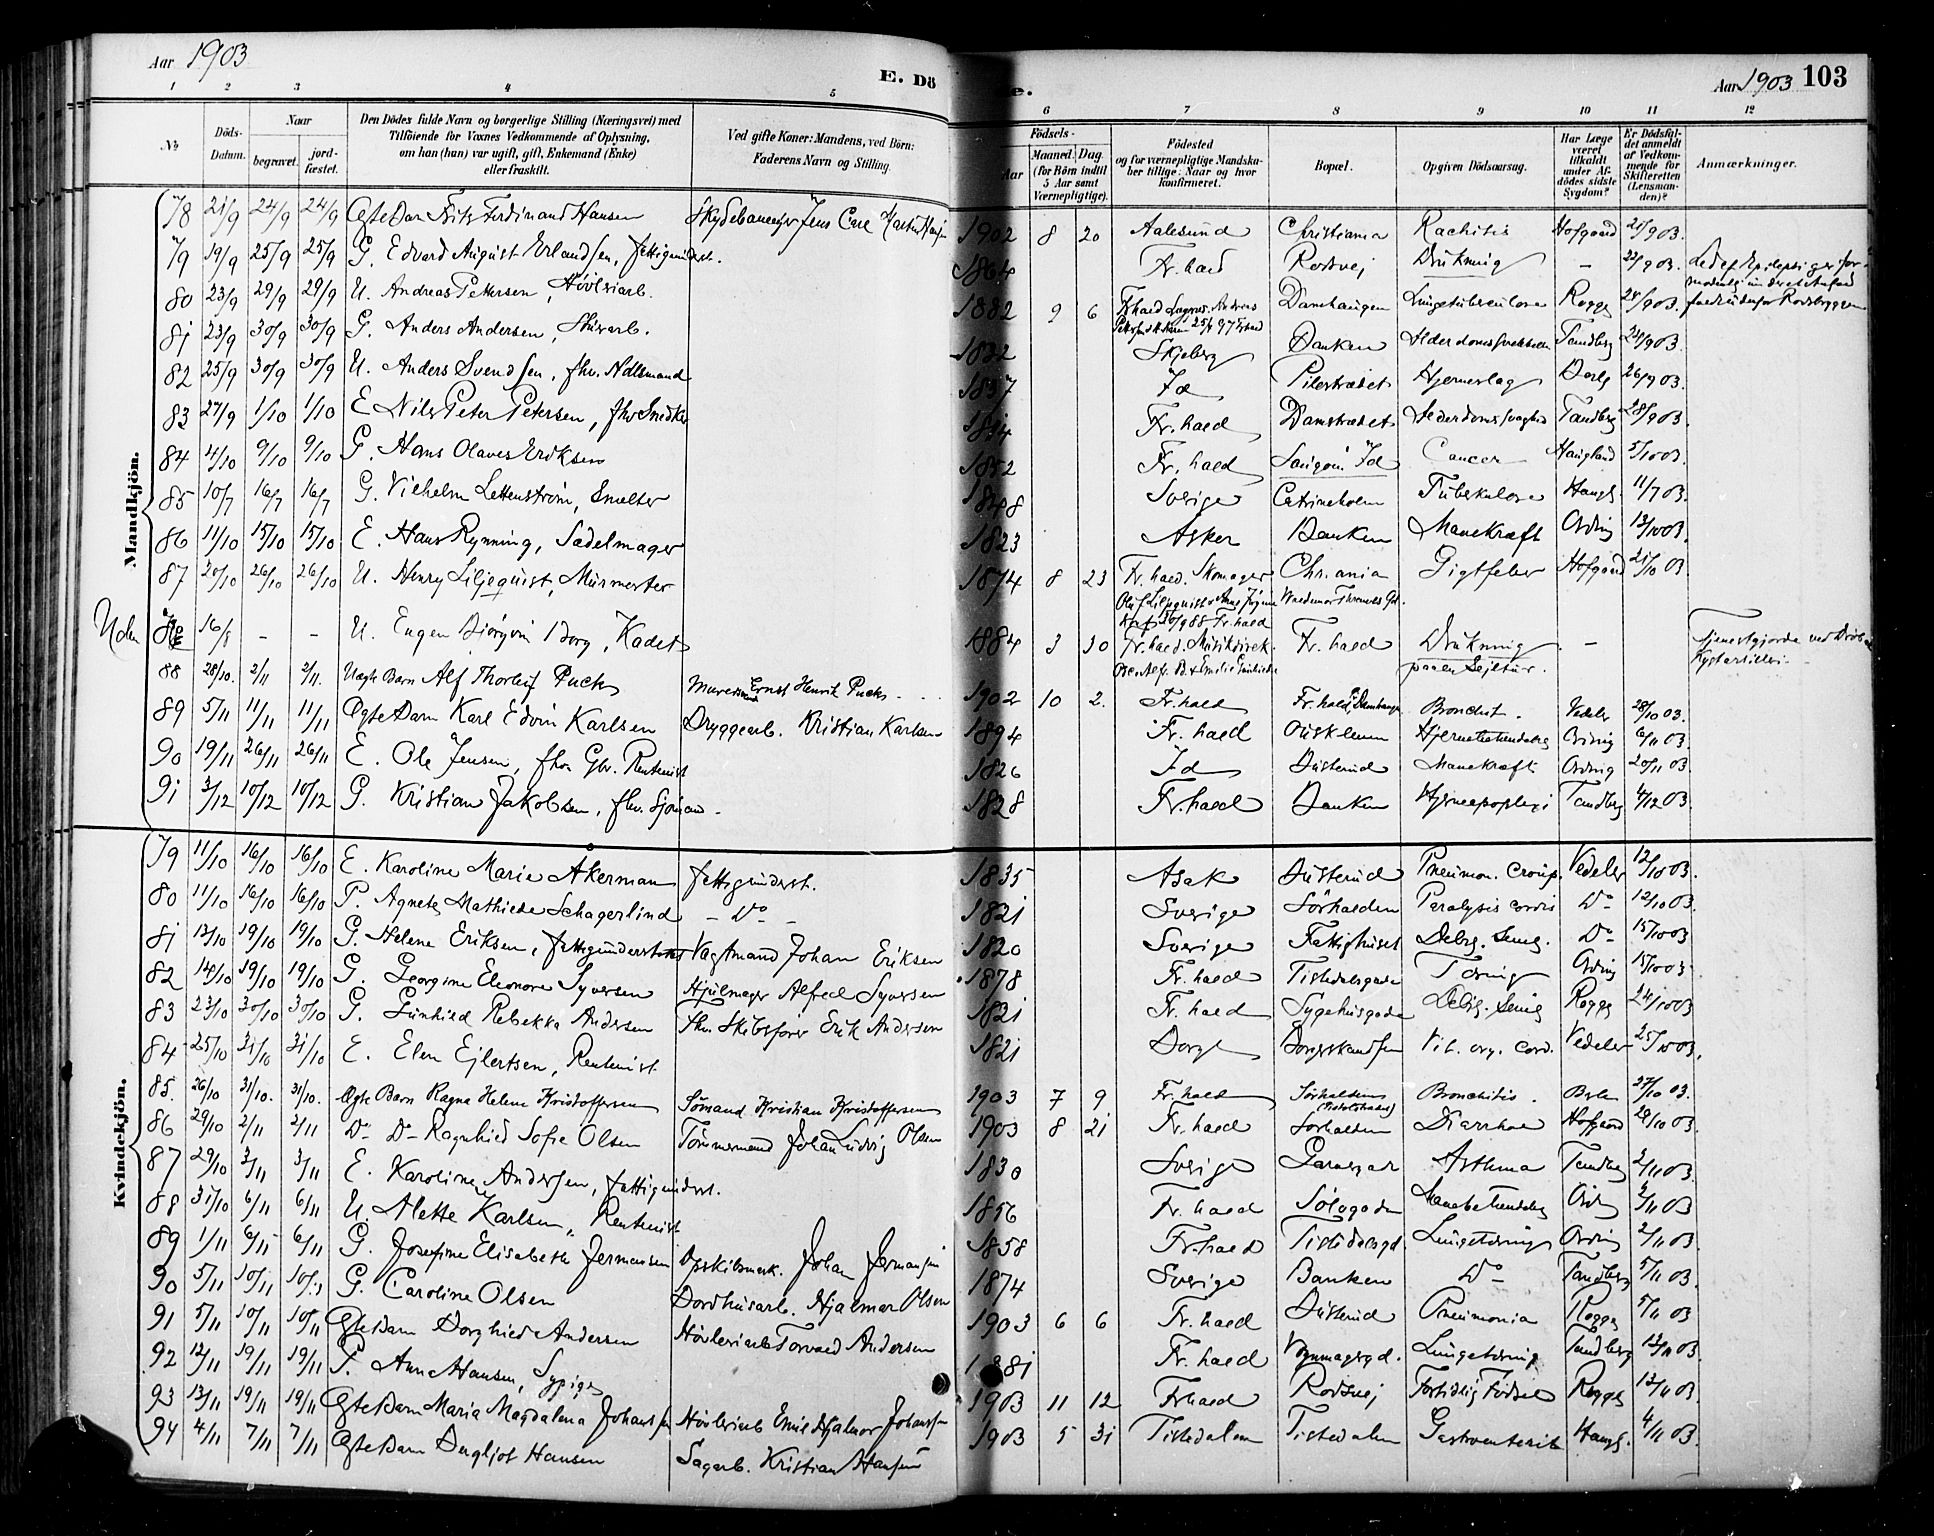 Aar 1903
E. Dö
e.
Aar 1903 103
1 2 3 4 5 6 7 8 9 10 11 12
No.
Döds-Datum.
Naar
begravet.
jord-fæstet.
Den Dödes fulde Navn og borgerlige Stilling (Næringsvei) med
Tilföiende for Voxnes Vedkommende af Oplysning,
om han (hun) var ugift, gift, Enkemand (Enke)
eller fraskilt.
Ved gifte Koner: Mandens, ved Börn:
Faderens Navn og Stilling.
Födsels-
Aar
Maaned. Dag.
(for Börn indtil
5 Aar samt
Værnepligtige).
Födested
og for værnepligtige Mandska-
ber tillige: Naar og hvor
konfirmeret.
Bopæl.
Opgiven Dödsaarsag.
Har Læge
været
tilkaldt
under Af-
dödes sidste
Sygdom?
Er Dödsfal-
det anmeldt
af Vedkom-
mende for
Skifteretten
(Lensman-
den)?
Anmærkninger.
Mandkjön.
78 21/9 24/9 24/9 Ægte Barn Fritz Ferdinand Hansen Jens Carl 1902 8 20 Aalesund Christiania Rachitis Hofgaard 21/9 03.
79 19/9 25/9 25/9 G. Edvard August Erlandsen, fattigunderst. 1864 Fr.hald Rodsvej Drukning – 22/9 03.
80 23/9 29/9 29/9 U. Andreas Pettersen, Høvleriarb. 1882 9 6 Fr.hald Damhaugen Lungetuberculose Rogge 24/9 03.
81 23/9 30/9 30/9 G. Anders Andersen, 1822 Skjeberg Banken Tandberg 24/9 03.
82 25/9 30/9 30/9 U. Anders Svendsen, fhv. 1837 Id Pilestrædet Hjerneslag 26/9 03.
83 27/9 1/10 1/10 E. Nils Peter Petersen, fhv Snedker Fr.hald Damstrædet Tandberg 28/9 03.
84 4/10 9/10 9/10 G. Hans Olaves Eriksen 1852 Fr. hald Id Cancer Haugland 5/10 03.
85 10/7 16/7 16/7 G. Vilhelm Lettenstrøm, Smelter 1848 Sverige Catrineholm Tuberkulose Haugl. 11/7 03.
86 11/10 15/10 15/10 E. Hans Rynning, Sadelmager 1823 Asker Banken Marekræft Ording 13/10 03.
87 20/10 26/10 26/10 U. Henry Liljequist, Murmester 1874 8 23 Fr.hald. Skomager Chr.ania Gigtfeber Hofgaard 21/10 03
Uden 16/8 – – U. Eugen Bjørgvin Borg, Kadet 1884 3 30 Fr.hald. Musikdirek. Fr. hald Drukning –
paa en Sejltur.
88 28/10. 2/11 2/11. Uægte Barn Alf Thorleif Puck Ernst Henrik Puck 1902 10 2. Fr.hald Fr.hald, Damhaugen Bronchit. Vedeler 28/10 03.
89 5/11 11/11 11/11 Ægte Barn Karl Edvin Karlsen Bryggearb. Kristian Karlsen 1894 Fr. hald Ording 6/11 03.
90 19/11 26/11 26/11 E. Ole Jensen, fhv. Gbr. Rentenist 1826 Id Marekræft Ording 20/11 03
91 3/12 10/12 10/12 G. Kristian Jakobsen, fhv. Sjømand. 1828 Fr.hald Banken Hjerneapoplexi Tandberg 4/12 03.
Kvindekjön.
79 11/10 16/10 16/10 E. Karoline Marie Åkerman fattigunderst. 1835 Asak Pneumon. croup. Vedeler 12/10 03.
80 11/10 16/10 16/10 P. Agnete Mathilde Schagerlind – Do – 1821 Sverige Sörhalden Paralysis cordis Do 12/10 03.
81 13/10 19/10 19/10 G. Helene Eriksen, fattigunderstøttet Vagtmand Johan Eriksen 1820 Sverige Fattighuset Debg. Senig. Do 15/10 03
82 14/10 19/10 19/10 G. Georgine Eleonore Syversen Hjulmager Alfred Syversen 1878 Fr. hald Tistedalsgade Tæring Ording 15/10 03.
83 23/10 30/10 30/10 G. Gunhild Rebekka Andersen Fhv. Skibsfører Erik Andersen 1821 Fr. hald Sygehusgade Debg. Senig Rogge 24/10 03
84 25/10 31/10 31/10 E. Elen Ejlertsen, Rentenist 1821 Borge Vit. org. cord. Vedeler 25/10 03.
85. 26/10 31/10. 31/10. Ægte Barn Ragna Helene Kristoffersen Sømand Kristian Kristoffersen 1903 7 9 Fr. hald Sörhalden Bronchitis. 27/10 03.
86 29/10 2/11 2/11 Do Do Ragnhild Sofie Olsen Tømmermand Johan Ludvig Olsen 1903 8 21 Fr. hald Sörhalden Diarrhoe Hofgaard 29/10 03.
87 29/10 3/11 3/11 E. Karoline Andersen, fattigunderst. 1830 Sverige Asthma Tandberg 2/11 03.
88 31/10 6/11 6/11 U. Alette Karlsen, Rentenist 1856 Fr. hald Sølvgaden Ording 3/11 03
89 1/11 6/11 6/11 G. Josefine Elisabeth Jermansen Opskibsmsk. Johan Jermansen 1858 Fr.hald Tistedalsgd. Lungetæring Ording 2/11 03.
90 5/11 10/11 10/11 G. Caroline Olsen Bordhusarb. Hjalmar Olsen 1874 Sverige Banken Do Tandberg 5/11 03.
91 5/11 10/11 10/11 Ægte Barn Borghild Andersen Høvleriarb Torvald Andersen 1903 6 6 Fr. hald Pneumonia Rogge 5/11 03
92 12/11 19/11 19/11 P. Anna Hansen, Sypige 1881 Fr. hald Vognmagergd. Lungetæring Tandberg 12/11 03.
93 13/11 19/11 19/11 Ægte Barn Maria Magdalena Johansen Høvleriarb Emil Hjalmar Johansen 1903 11 12 Frhald Rodsvej Fortidlig Fødsel Rogge 13/11 03
94 4/11 7/11 7/11 Ægte Barn Dagljot Hansen Sagarb. Kristian Hansen 1903 5 31 Tistedalen Tistedalen Gastroenterit Haugl. 4/11 03.